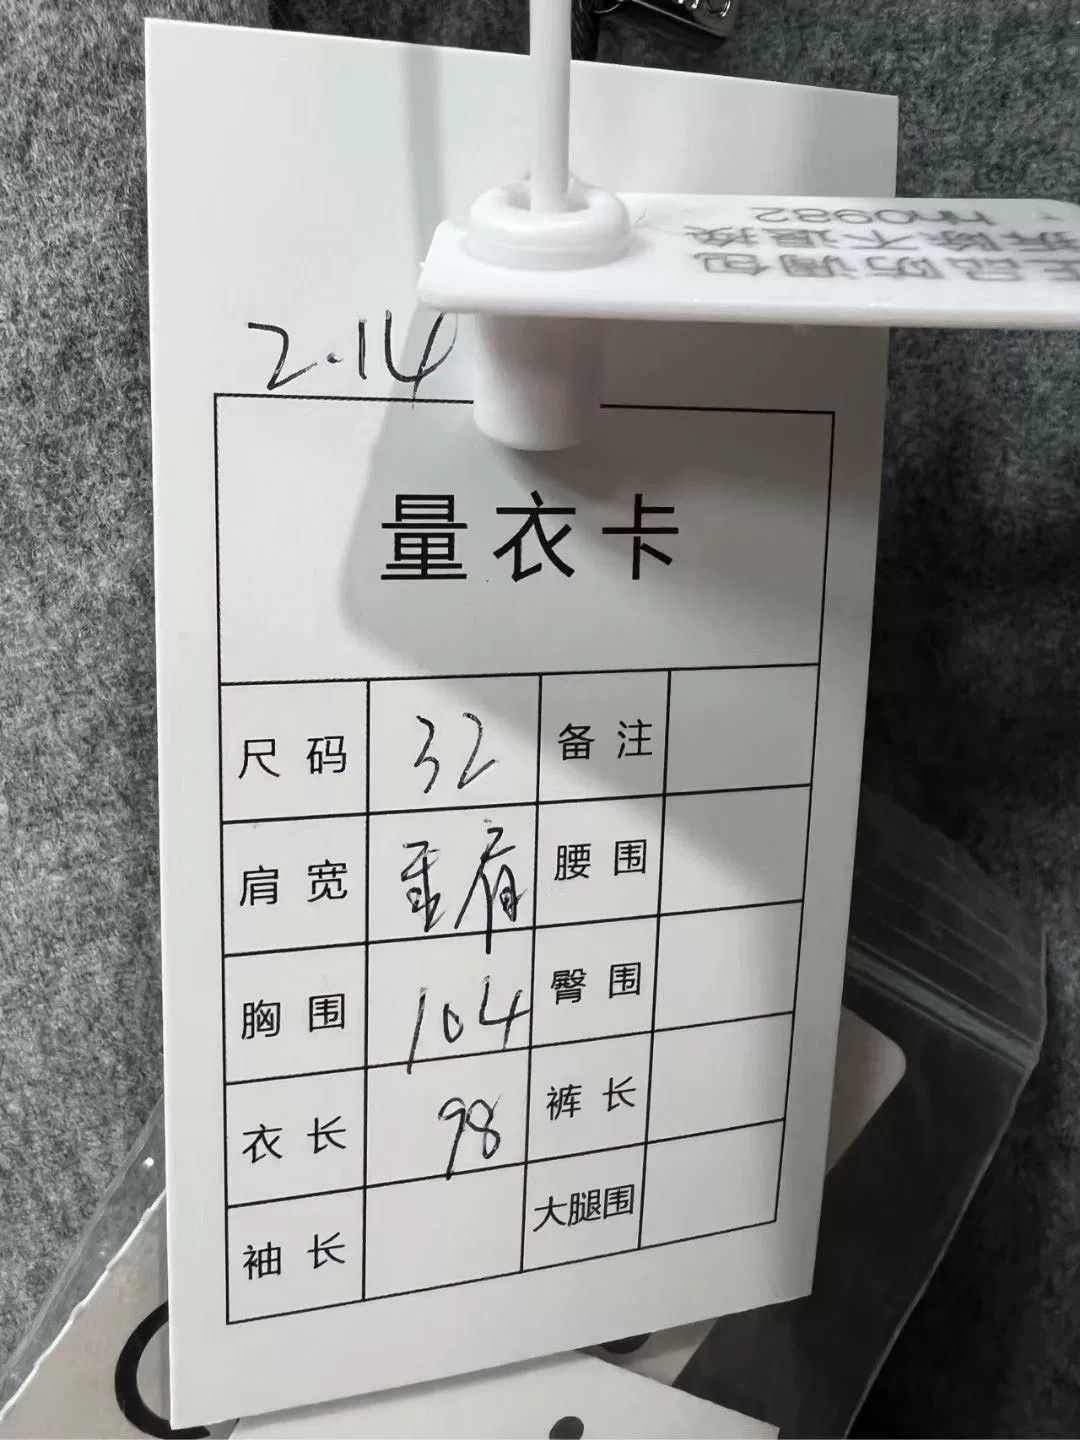 正品防调包
拆除不退换
hh0982
2.14
量衣卡
尺码 32 备注
肩宽 垂肩 腰围
胸围 104 臀围
衣长 98 裤长
袖长 大腿围